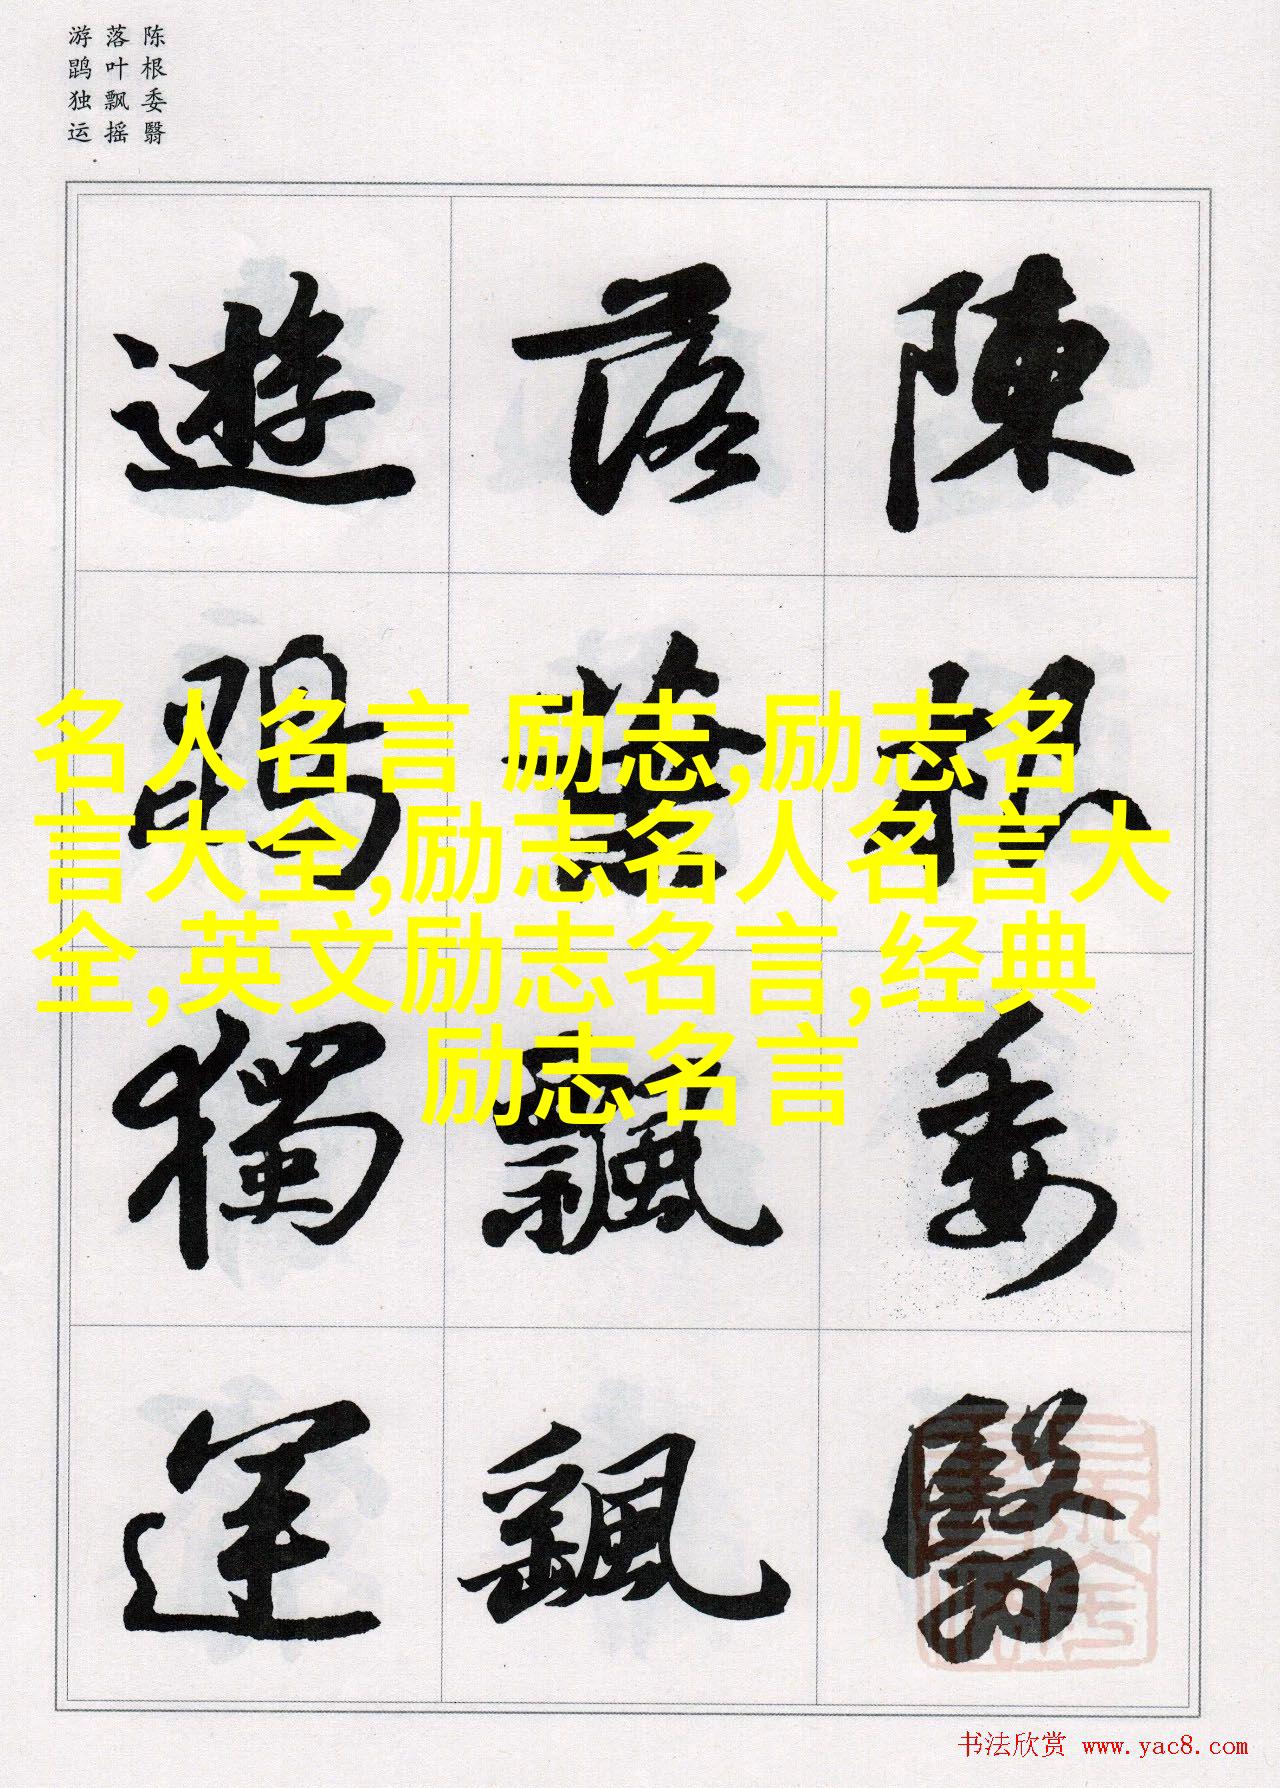 陈根委翳
落叶飘摇
游鹍独运
陳根委翳
落葉飄颻
遊鵾獨運
名人名言 励志,励志名
言大全,励志名人名言大
全,英文励志名言,经典
励志名言
书法欣赏 www.yac8.com